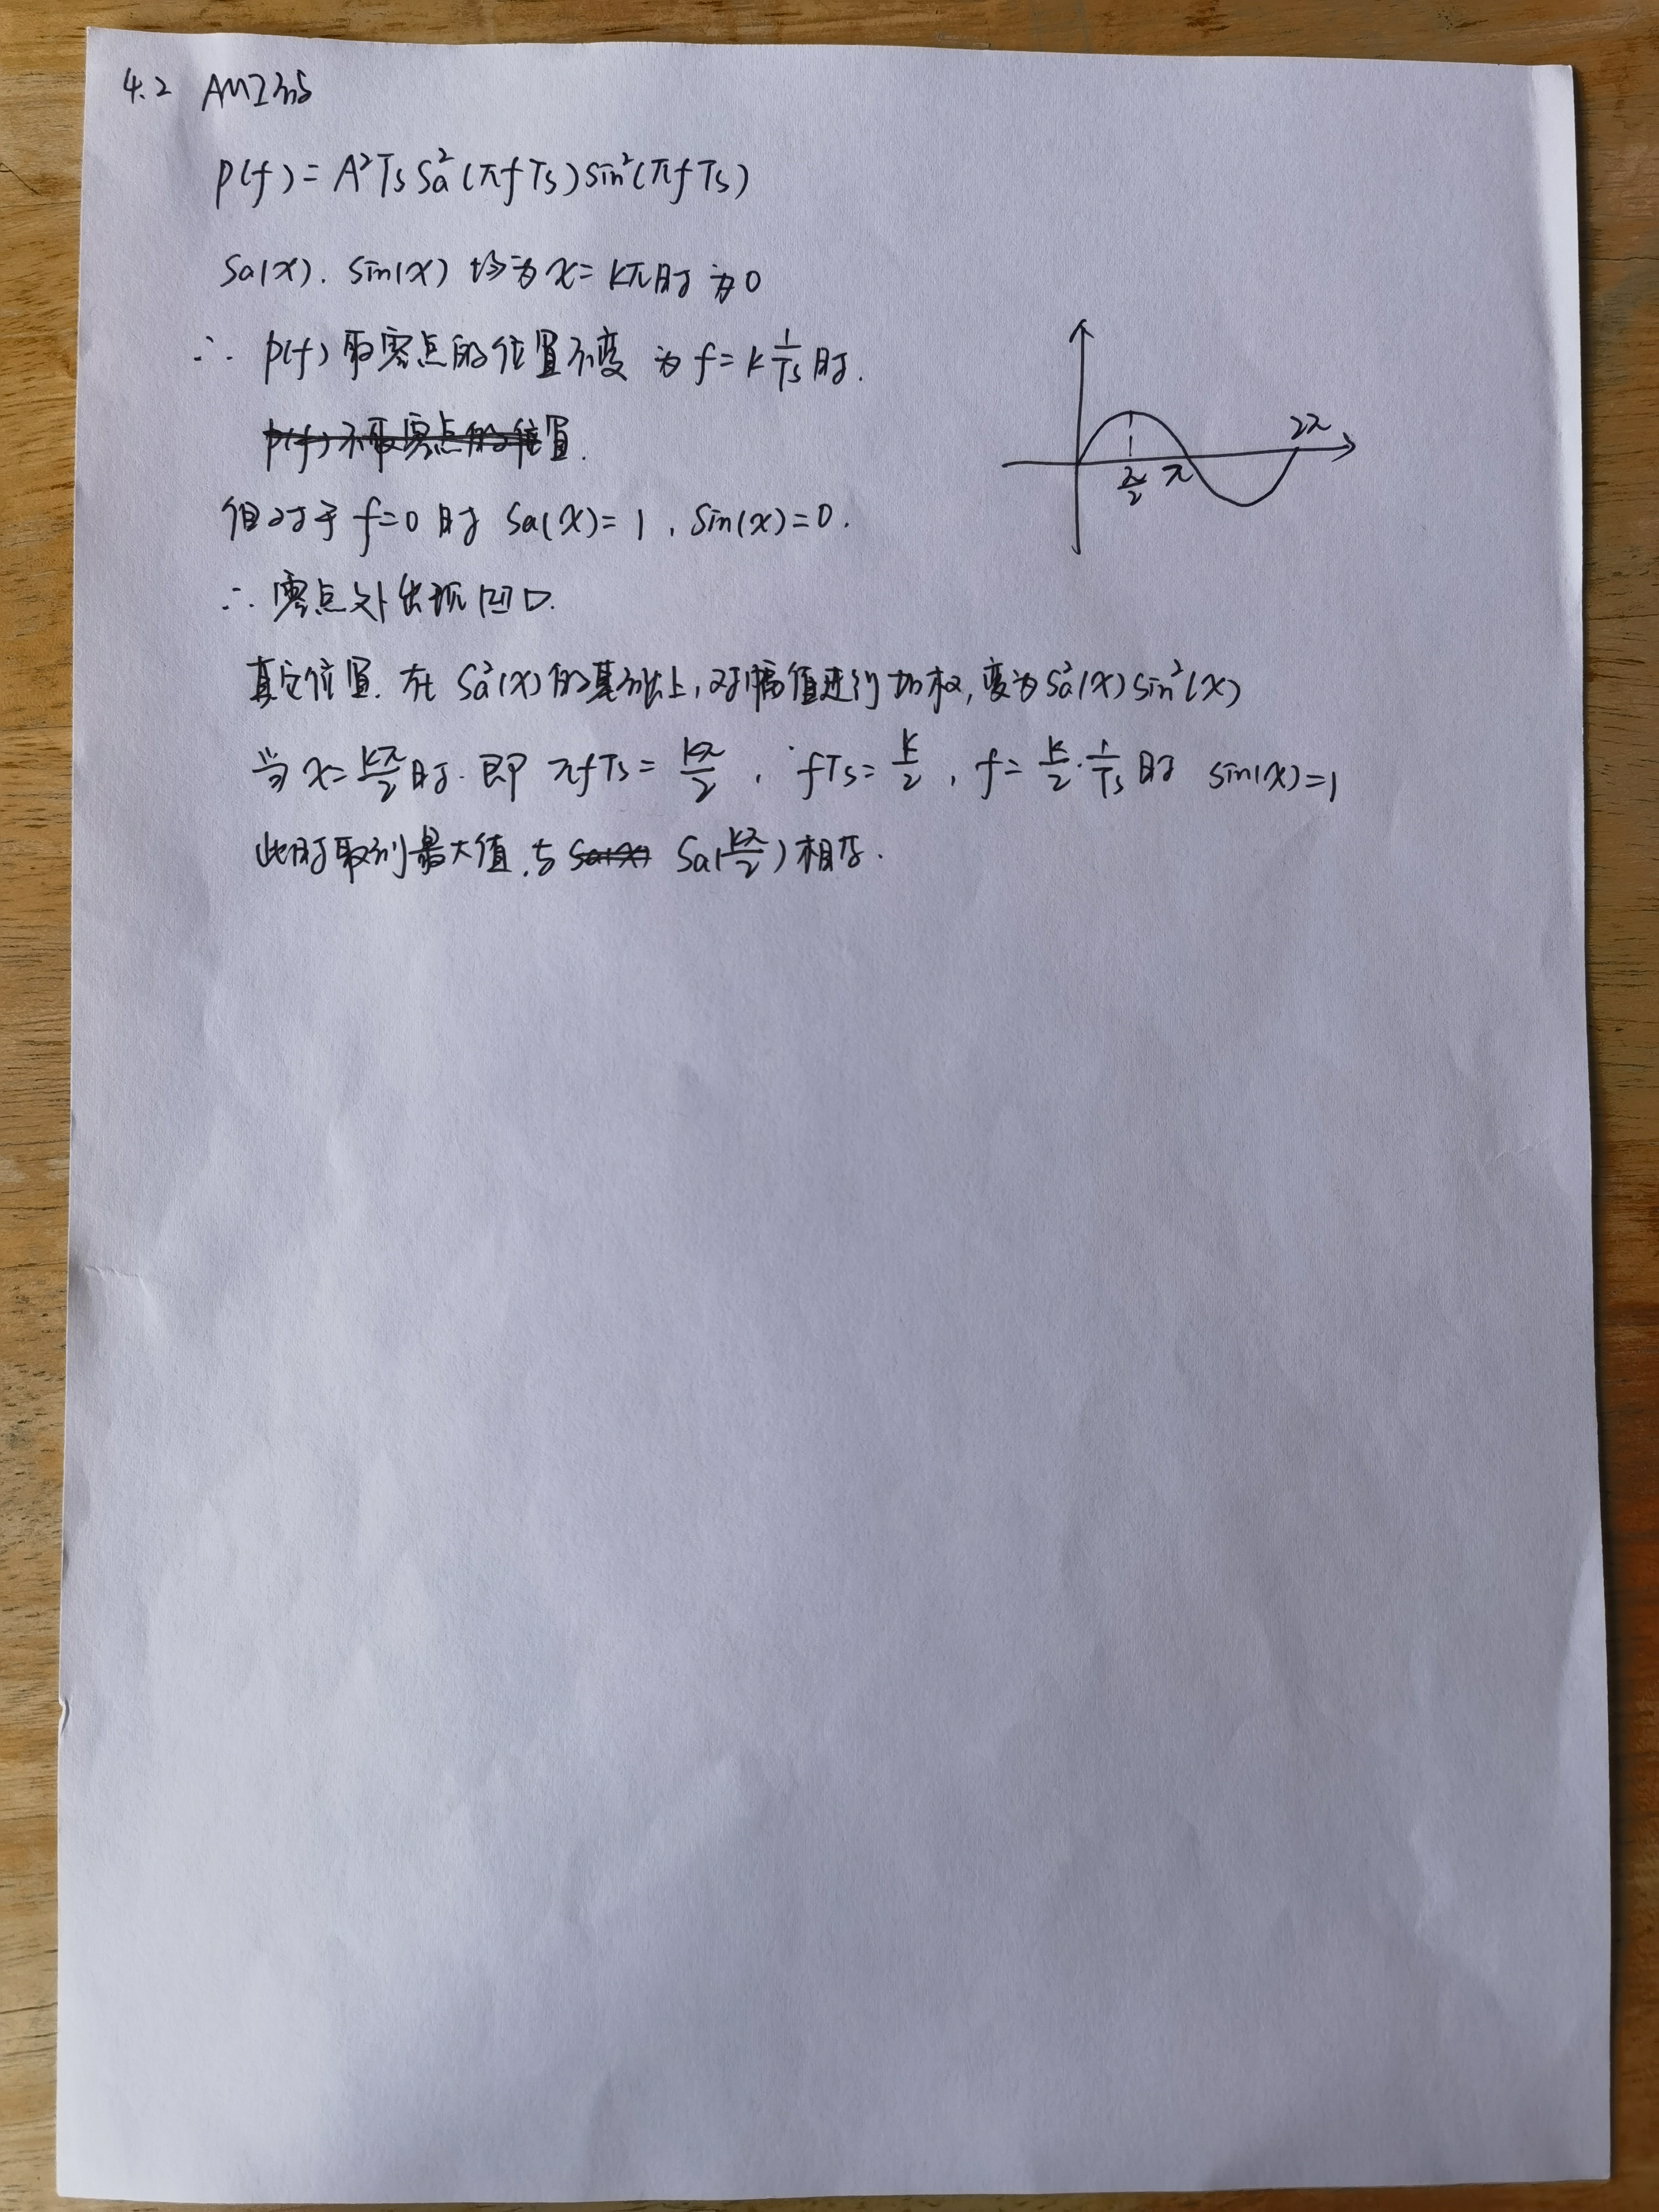 4.2 AMI码
P(f)=A²Ts Sa²(πfTs)sin²(πfTs)
Sa(x). Sin(x) 均为 x=kπ时 为0
∴ P(f) 取零点的位置不变 为 f=k 1/Ts 时.
P(f)不取零点的位置.
但对于 f=0 时 Sa(x)=1, Sin(x)=0.
∴ 零点处出现凹口.
其它位置. 在 Sa²(x)的基础上,对幅值进行加权,变为Sa²(x)sin²(x)
当 x=kπ/2 时. 即 πfTs=kπ/2, fTs=k/2, f=k/2·1/Ts 时 sin(x)=1
此时取到最大值,与 Sa(x) Sa(kπ/2)相存.
π/2 π 2π